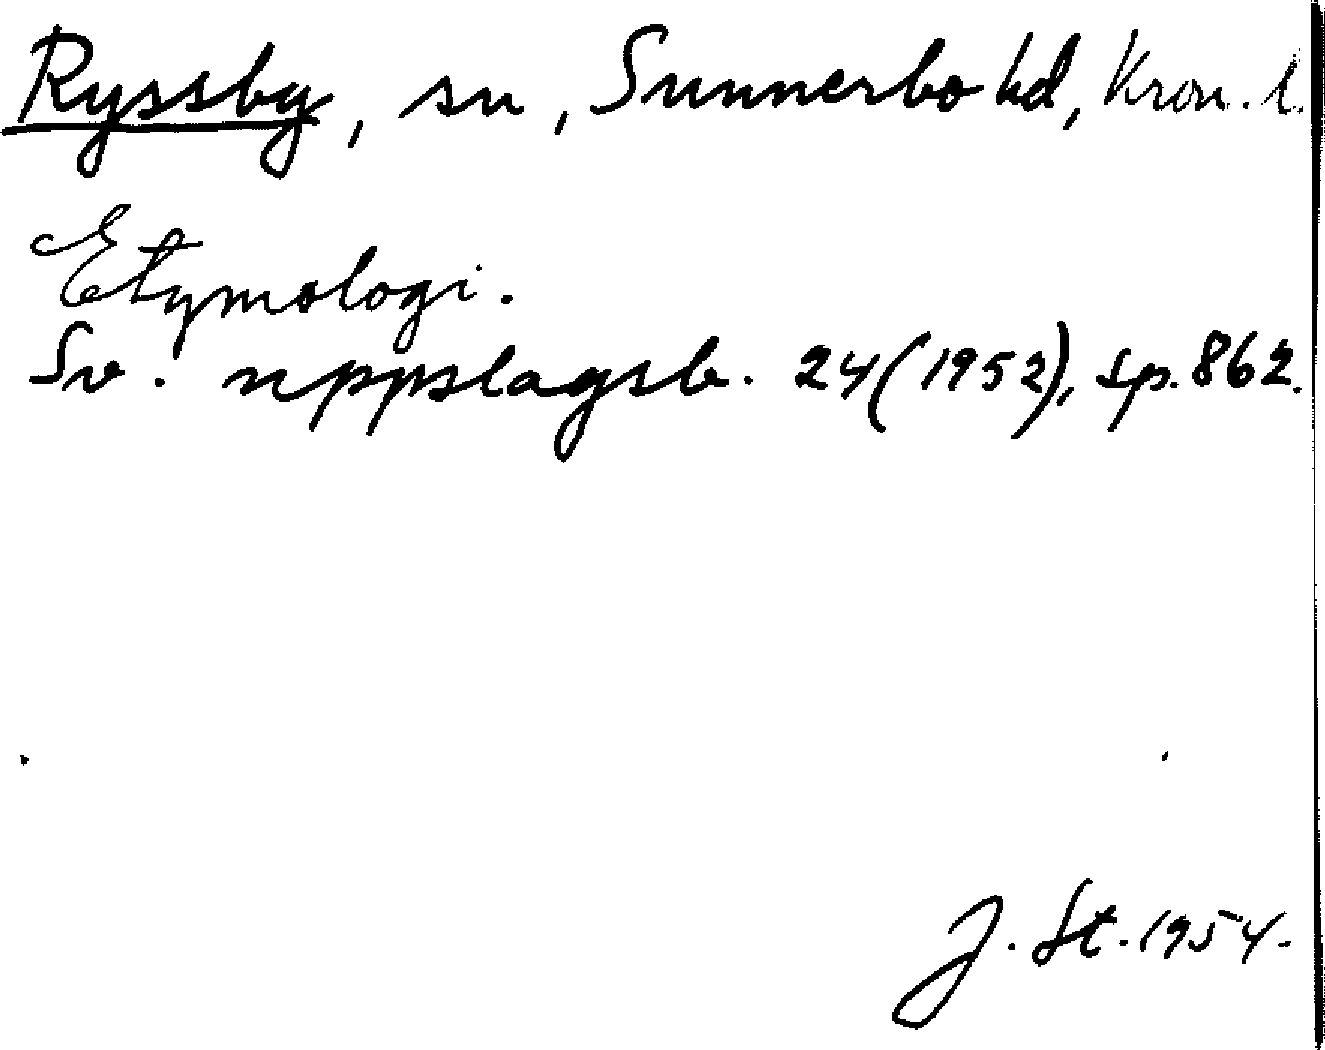 Ryssby, sn, Sunnerbo hd, Kron. l.
Etymologi.
Sv. uppslagsb. 24 (1952), sp. 862.
J. St. 1954.